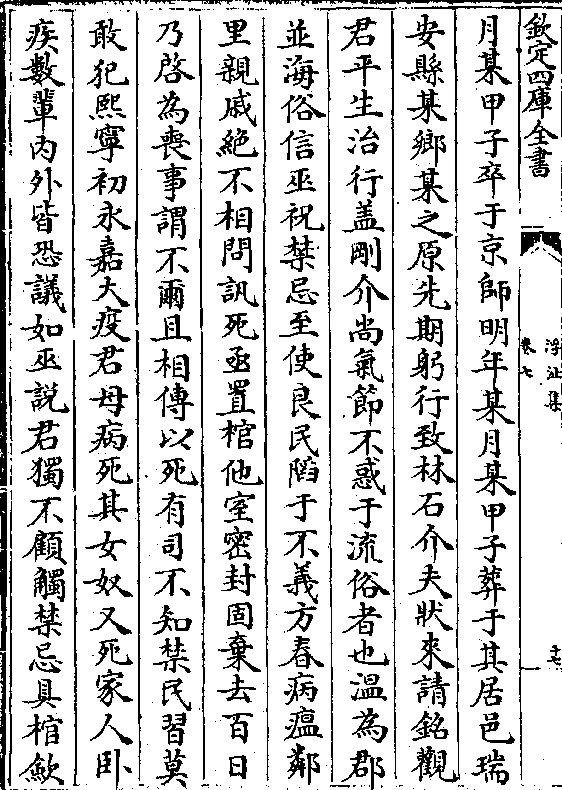 欽定四庫全書
浮沚集
卷七
十七
月某甲子卒于京師明年某月某甲子葬于其居邑瑞
安縣某鄉某之原先期躬行致林石介夫狀來請銘觀
君平生治行蓋剛介尚氣節不惑于流俗者也溫為郡
並海俗信巫祝禁忌至使良民陷于不義方春病瘟鄰
里親戚絶不相問訊死亟置棺他室密封固棄去百日
乃啓為喪事謂不爾且相傳以死有司不知禁民習莫
敢犯熙寧初永嘉大疫君母病死其女奴又死家人卧
疾數輩内外皆恐議如巫說君獨不顧觸禁忌具棺歛